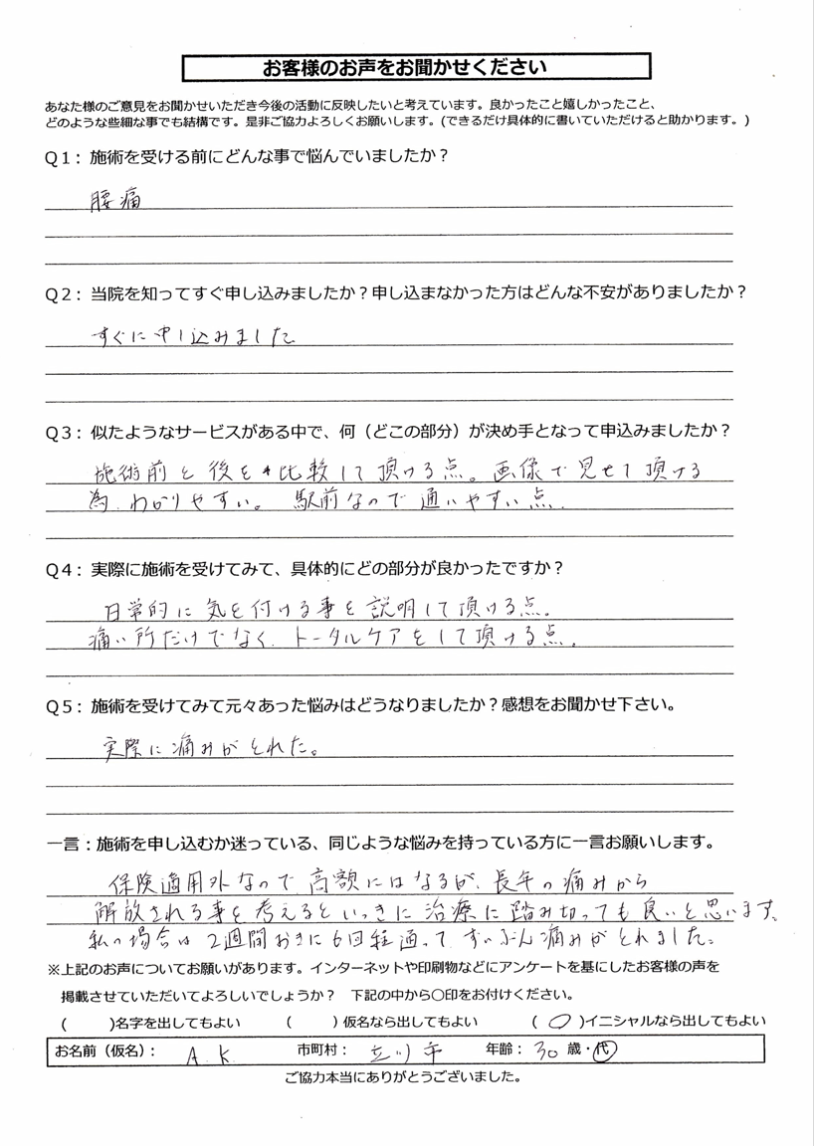 お客様のお声をお聞かせください
あなた様のご意見をお聞かせいただき今後の活動に反映したいと考えています。良かったこと嬉しかったこと、
どのような些細な事でも結構です。是非ご協力よろしくお願いします。(できるだけ具体的に書いていただけると助かります。)
Q1:施術を受ける前にどんな事で悩んでいましたか?
腰痛
Q2:当院を知ってすぐ申し込みましたか?申し込まなかった方はどんな不安がありましたか?
すぐに申し込みました
Q3:似たようなサービスがある中で、何(どこの部分)が決め手となって申込みましたか?
施術前と後を比較して頂ける点。画像で見せて頂ける
為、わかりやすい。駅前なので通いやすい点。
Q4:実際に施術を受けてみて、具体的にどの部分が良かったですか?
日常的に気を付ける事を説明して頂ける点。
痛い所だけでなく、トータルケアをして頂ける点。
Q5:施術を受けてみて元々あった悩みはどうなりましたか?感想をお聞かせ下さい。
実際に痛みがとれた。
一言:施術を申し込むか迷っている、同じような悩みを持っている方に一言お願いします。
保険適用外なので高額にはなるが、長年の痛みから
解放される事を考えるといっきに治療に踏み切っても良いと思います。
私の場合は2週間おきに6回程通って ずいぶん痛みがとれました。
※上記のお声についてお願いがあります。インターネットや印刷物などにアンケートを基にしたお客様の声を
掲載させていただいてよろしいでしょうか? 下記の中から○印をお付けください。
( )名字を出してもよい ( )仮名なら出してもよい (○)イニシャルなら出してもよい
お名前(仮名): A.K 市町村: 立川市 年齢: 30 歳・代
ご協力本当にありがとうございました。